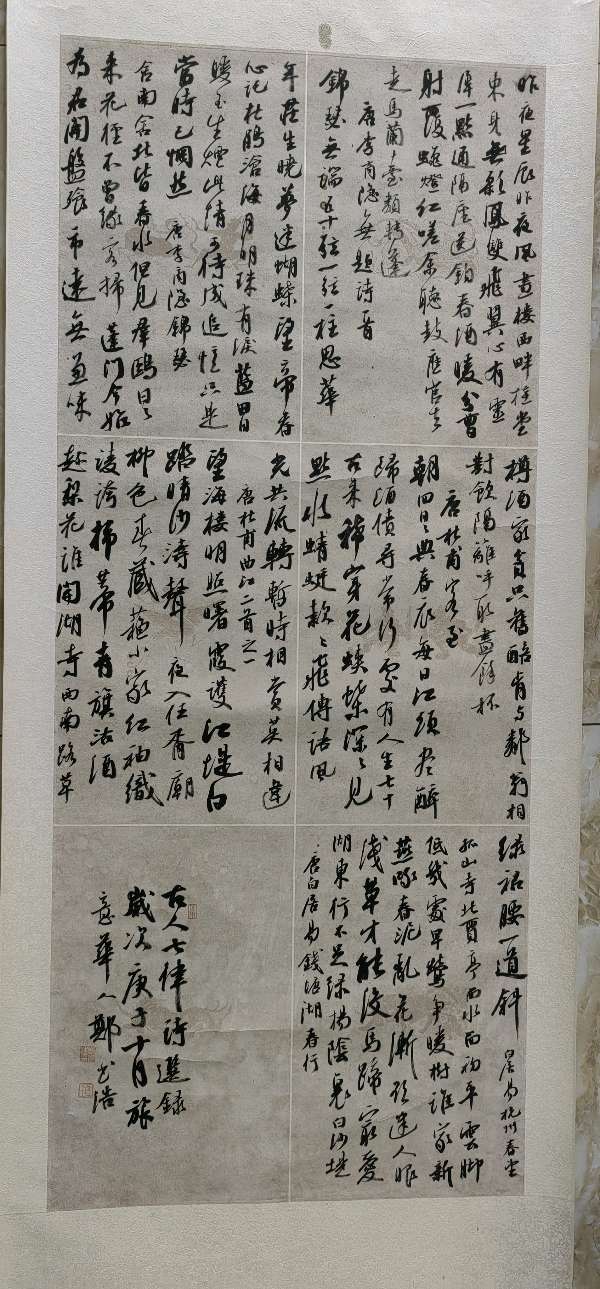 昨夜星辰昨夜風畫樓西畔桂堂
東身無彩鳳雙飛翼心有靈
犀一點通隔座送鈎春酒暖分曹
射覆蠟燈紅嗟余聽鼓應官去
走馬蘭臺類轉蓬
唐李商隱無題詩一首
錦瑟無端五十弦一弦一柱思華
年莊生曉夢迷蝴蝶望帝春
心託杜鵑滄海月明珠有淚藍田日
暖玉生煙此情可待成追憶只是
當時已惘然 唐李商隱錦瑟
舍南舍北皆春水但見羣鷗日々
來花徑不曾緣客掃蓬門今始
為君開盤飧市遠無兼味
樽酒家貧只舊醅肯與鄰翁相
對飲隔籬呼取盡餘杯
唐杜甫客至
朝回日々典春衣每日江頭盡醉
歸酒債尋常行處有人生七十
古來稀穿花蛺蝶深々見
點水蜻蜓款々飛傳語風
光共流轉暫時相賞莫相違
唐杜甫曲江二首之一
望海樓明照曙霞護江堤白
踏晴沙濤聲夜入伍胥廟
柳色春藏蘇小家紅袖織
綾誇柿蒂青旗沽酒
趁梨花誰開湖寺西南路草
綠裙腰一道斜 白居易杭州春望
孤山寺北賈亭西水面初平雲腳
低幾處早鶯爭暖樹誰家新
燕啄春泥亂花漸欲迷人眼
淺草才能沒馬蹄最愛
湖東行不足綠楊陰裏白沙堤
唐白居易錢塘湖春行
古人七律詩選錄
歲次庚子十月旅
意華人鄭浩